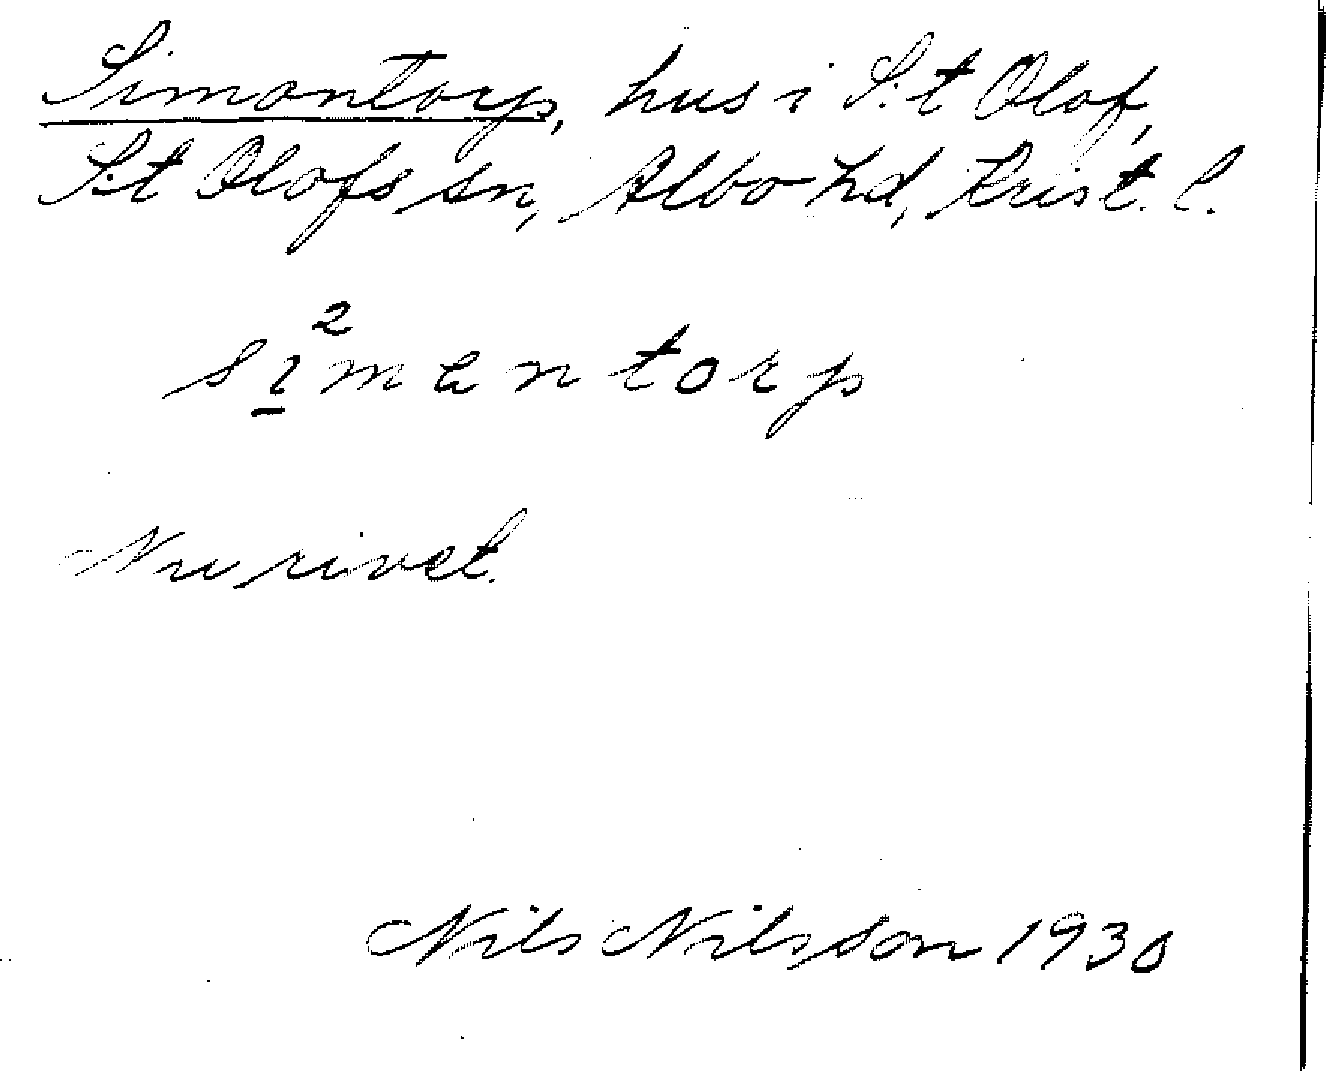 Simontorp, hus i S:t Olof,
S:t Olofs sn, Albo hd, Krist. l.
sı̱²mantorp
Nu rivet.
Nils Nilsson 1930